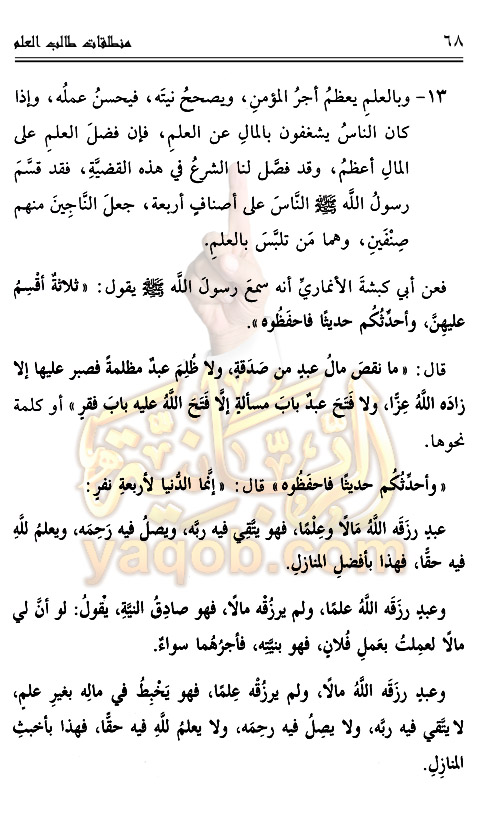 ٦٨ منطلقات طالب العلم
١٣- وبالعلمِ يعظمُ أجرُ المؤمنِ، ويصححُ نيتَه، فيحسنُ عملُه، وإذا
كان الناسُ يشغفون بالمالِ عن العلمِ، فإن فضلَ العلمِ على
المالِ أعظمُ، وقد فصَّل لنا الشرعُ في هذه القضيَّةِ، فقد قسَّمَ
رسولُ اللَّه ﷺ النَّاسَ على أصنافٍ أربعة، جعلَ النَّاجينَ منهم
صِنْفَينِ، وهما مَن تلبَّسَ بالعلمِ.
فعن أبي كبشةَ الأنماريِّ أنه سمعَ رسولَ اللَّه ﷺ يقول: «ثلاثةٌ أقْسِمُ
عليهنَّ، وأحدِّثُكُم حديثًا فاحفَظُوه».
قال: «ما نقصَ مالُ عبدٍ من صَدَقةٍ، ولا ظُلِمَ عبدٌ مظلمةً فصبر عليها إلا
زادَه اللَّهُ عِزًّا، ولا فتَحَ عبدٌ بابَ مسألةٍ إلَّا فتَحَ اللَّهُ عليه بابَ فقرٍ» أو كلمة
نحوها.
«وأحدِّثُكُم حديثًا فاحفَظُوه» قال: «إنَّما الدُّنيا لأربعةِ نفرٍ:
عبدٍ رزَقَه اللَّهُ مَالًا وعِلْمًا، فهو يتَّقِي فيه ربَّه، ويصلُ فيه رَحِمَه، ويعلمُ للَّهِ
فيه حقًّا، فهذا بأفضلِ المنازلِ.
وعبدٍ رزَقَه اللَّهُ علمًا، ولم يرزُقْه مالًا، فهو صادِقُ النيَّةِ، يقْولُ: لو أنَّ لي
مالًا لعمِلتُ بعَملِ فُلانٍ، فهو بنيَّتِه، فأجرُهُما سواءٌ.
وعبدٍ رزَقَه اللَّهُ مالًا، ولم يرزُقْه عِلمًا، فهو يَخْبِطُ في مالِه بغيرِ علمٍ،
لا يتَّقي فيه ربَّه، ولا يصلُ فيه رحِمَه، ولا يعلمُ للَّهِ فيه حقًّا، فهذا بأخبثِ
المنازِلِ.
الربانية
yaqob.com